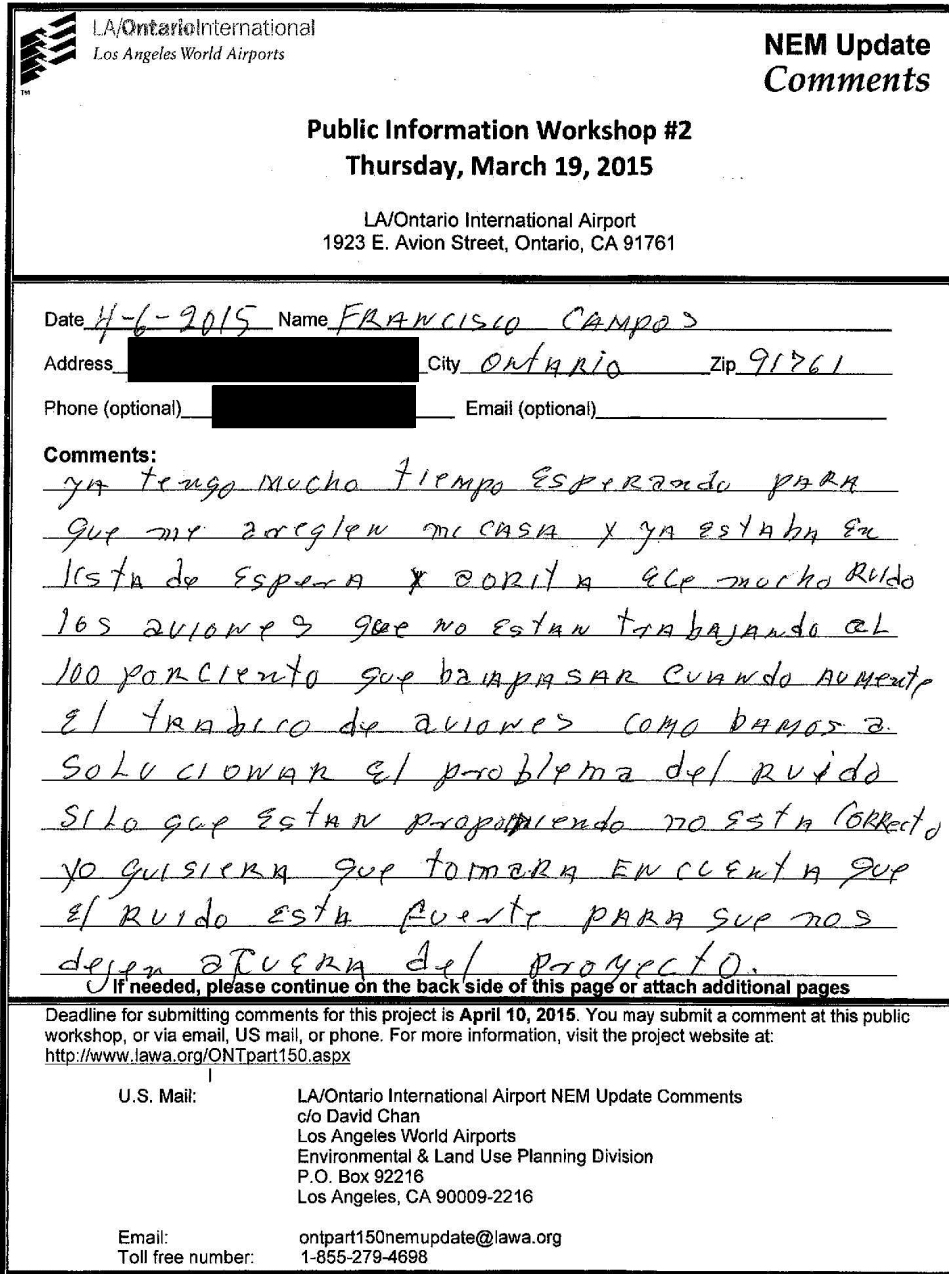 LA/OntarioInternational
Los Angeles World Airports
TM
NEM Update
Comments
Public Information Workshop #2
Thursday, March 19, 2015
LA/Ontario International Airport
1923 E. Avion Street, Ontario, CA 91761
Date 4-6-2015 Name FRANCISCO CAMPOS
Address City ONTARIO Zip 91761
Phone (optional) Email (optional)
Comments:
YA tengo mucho tiempo ESPERando PARA
que me areglen mi CASA y YA EStAba En
listA de EsperA y aoritA ece mucho RUIdo
los avioneS que NO EStAN trAbAJANdo aL
100 PORCIento que baiApASAR CUANdo AUMente
El trAbico de avioneS como bAMOS a
SOLUCIONAR El problema del RUido
SI Lo que EStAN proponiendo no EStA CORRecto
yo quisiERA que tomaRA EN CUENtA que
El RUido EStA fuerte PARA que nos
dejen afuERA del proyecto.
If needed, please continue on the back side of this page or attach additional pages
Deadline for submitting comments for this project is April 10, 2015. You may submit a comment at this public
workshop, or via email, US mail, or phone. For more information, visit the project website at:
http://www.lawa.org/ONTpart150.aspx
U.S. Mail: LA/Ontario International Airport NEM Update Comments
c/o David Chan
Los Angeles World Airports
Environmental & Land Use Planning Division
P.O. Box 92216
Los Angeles, CA 90009-2216
Email: ontpart150nemupdate@lawa.org
Toll free number: 1-855-279-4698